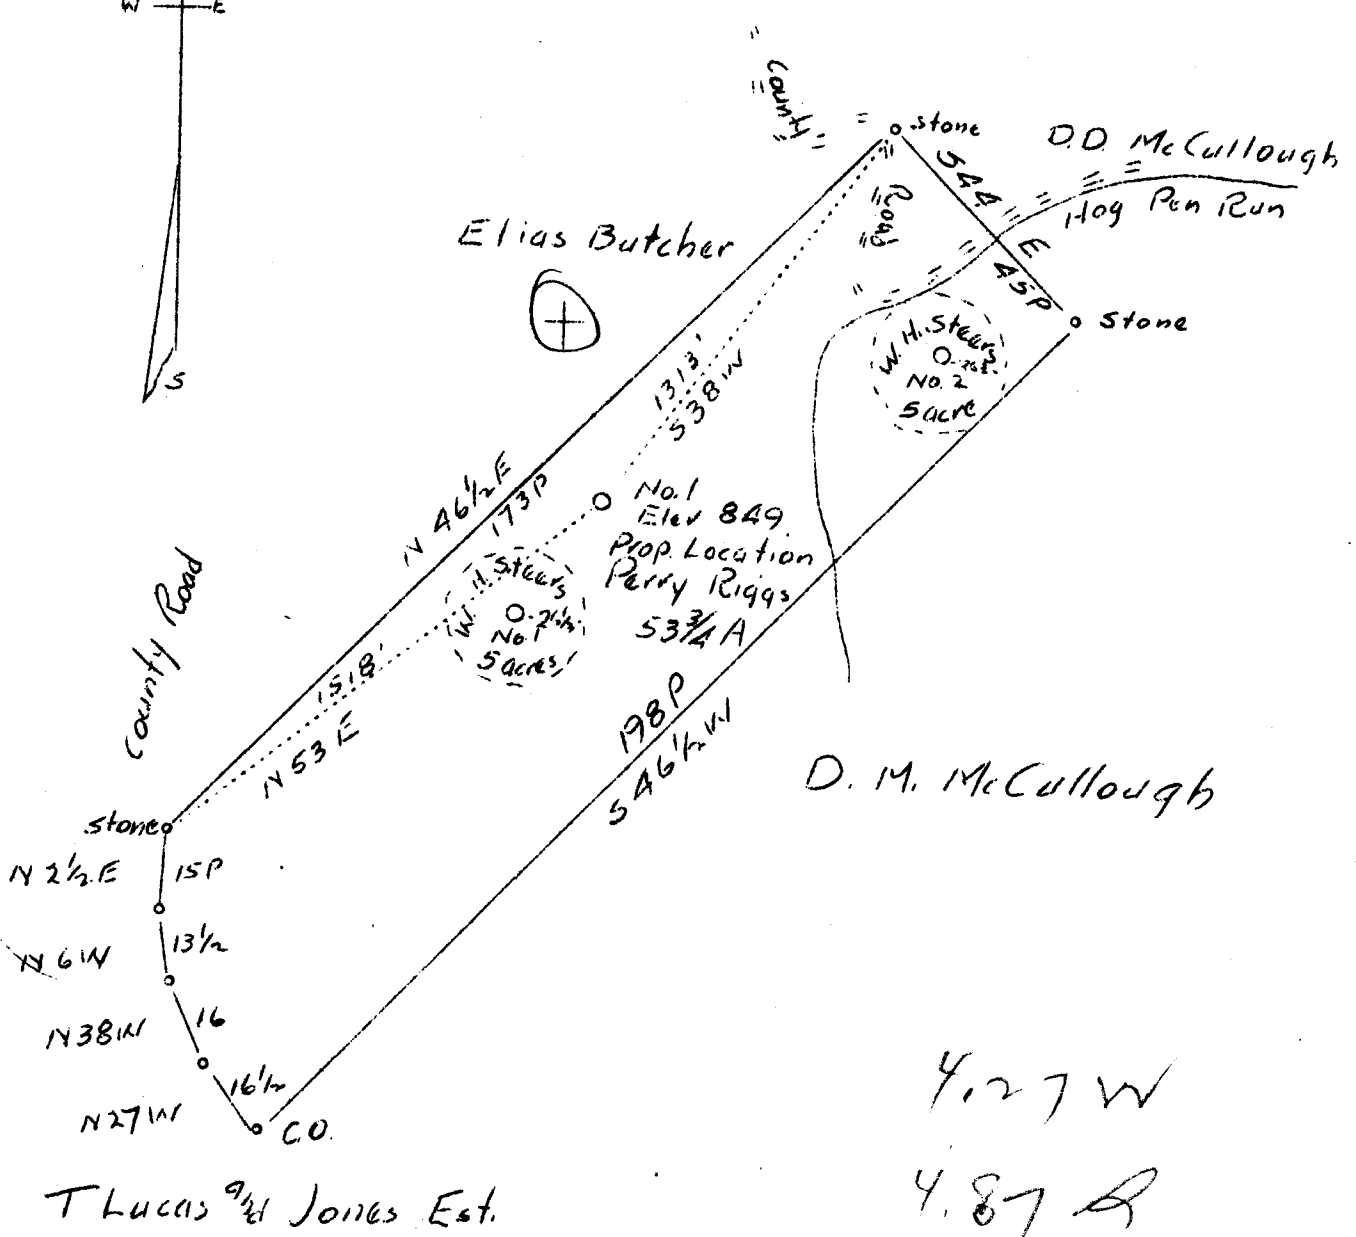 W E
S
County
Road
stone
D.D. McCullough
Hog Pen Run
S 44 E
45P
Stone
Elias Butcher
W. H. Stears
No. 2
5 acre
1313'
S 38 W
N 46 1/2 E
173P
No. 1
Elev 849
Prop. Location
Perry Riggs
53 3/4 A
W. H. Stears
No. 1
5 acres
County Road
1518'
N 53 E
198P
S 46 1/2 W
D. M. McCullough
Stone
N 2 1/2 E 15P
N 6 W 13 1/2
N 38 W 16
N 27 W 16 1/2
C.O.
T Lucas and Jones Est.
4.27 W
4.87